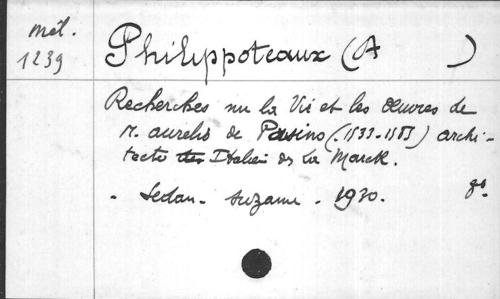 mél.
1239
Philippoteaux (A )
Recherches sur la Vie et les Œuvres de
M. aurelio de Pasino (1533-1583) archi-
tecte Italien de La Marck.
- Sedan - Suzanne - 1930. 8°.